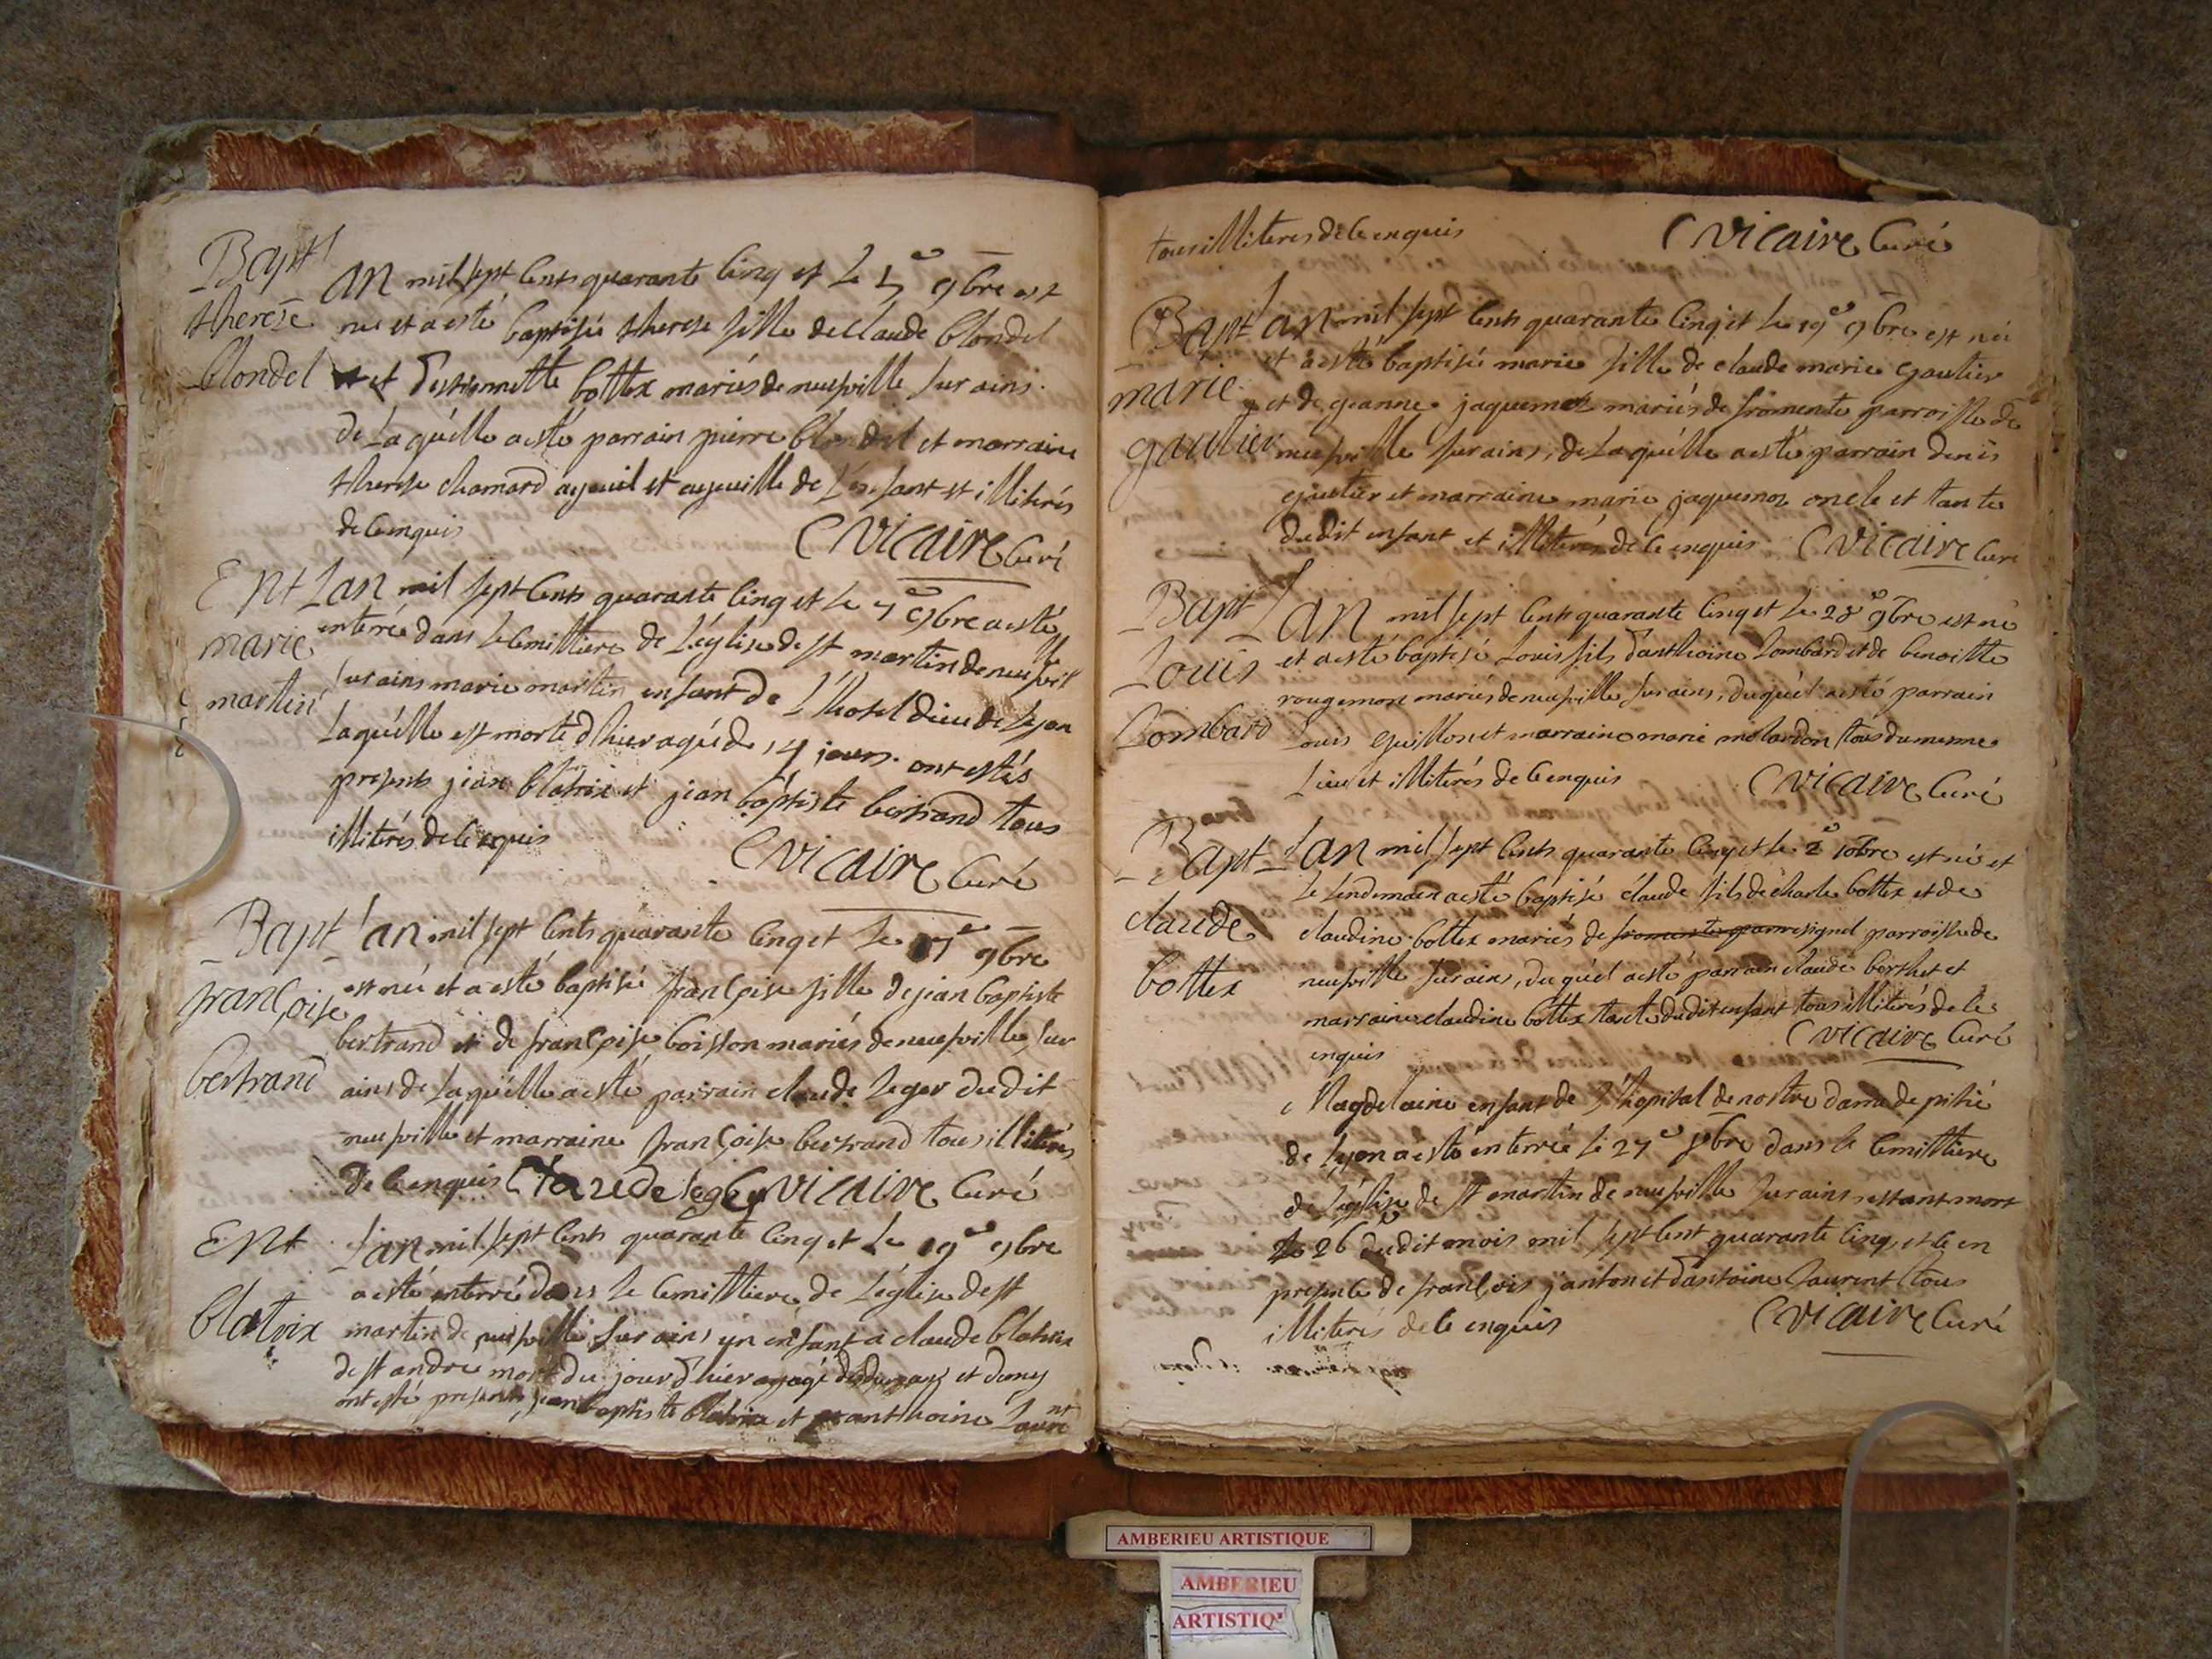 Bapt
therese
blondel
l'an mil sept cents quarante cinq et le 5e 9bre est
née et a esté baptisée therese fille de claude blondel
et d'estiennette bottex mariés de neufville sur ains.
de Laquélle a esté parrain pierre blondel et marraine
therese chamard ayeuil et ayeuille de l'enfant et illiterés
de ce enquis
Vicaire Curé
Ent
marie
martin
Lan mil sept cents quarante cinq et le 7e 9bre a esté
enterrée dans le cemittiere de L'église de st martin de neufville
sur ains marie martin enfant de L'hotel dieu de Lyon
Laquélle est morte d'hier agée de 14 jours. ont estés
presents jean blatrix et jean baptiste bertrand tous
illiterés de ce enquis
Vicaire Curé
Bapt
françoise
bertrand
l'an mil sept cents quarante cinq et le 17e 9bre
est née et a esté baptisée françoise fille de jean baptiste
bertrand et de françoise boisson mariés de neufville sur
ains de Laquélle a esté parrain claude Leger dudit
neufville et marraine françoise bertrand tous illiterés
de ce enquis Vicaire Curé
Ent
blatrix
Lan mil sept cents quarante cinq et le 19e 9bre
a esté enterré dans le cemittiere de L'église de st
martin de neufville sur ains un enfant a claude blatrix
de st andré mort du jour d'hier agé
ont esté presents jean baptiste blatrix et anthoine Laurent
tous illiteres de ce enquis Vicaire Curé
Bapt
marie
gautier
Lan mil sept cents quarante cinq et le 19e 9bre est née
et a esté baptisée marie fille de claude marie gautier
et de jeanne jaquemoz mariés de fromente parroisse de
neufville sur ains, de Laquélle a esté parrain denis
gautier et marraine marie jaquemoz oncle et tante
dudit enfant et illiterés de ce enquis Vicaire Curé
Bapt
Louis
Lombard
Lan mil sept cents quarante cinq et le 28e 9bre est né
et a esté baptisé Louis fils d'anthoine Lombard et de benoitte
rougemon mariés de neufville sur ains, duquél a esté parrain
Louis guillon et marraine marie molardon tous du mesme
Lieu et illiterés de ce enquis Vicaire Curé
Bapt
claude
bottex
Lan mil sept cents quarante cinq et le 2e 10bre est né et
le lendemain a esté baptisé claude fils de charle bottex et de
claudine bottex mariés de fromente parr resignel parroisse de
neufville sur ains, duquél a esté parrain claude berthet et
marraine claudine bottex tante dudit enfant tous illiterés de ce
enquis Vicaire Curé
Magdelaine enfant de L'hopital de nostre dame de pitié
de Lyon a esté enterrée le 27e 9bre dans le cemittiere
de L'église de st martin de neufville sur ains estant mort
le 26 dudit mois mil sept cent quarante cinq et ce en
presence de françois janton et d'antoine Laurent tous
illiterés de ce enquis Vicaire Curé
AMBERIEU ARTISTIQUE
AMBERIEU
ARTISTIQ